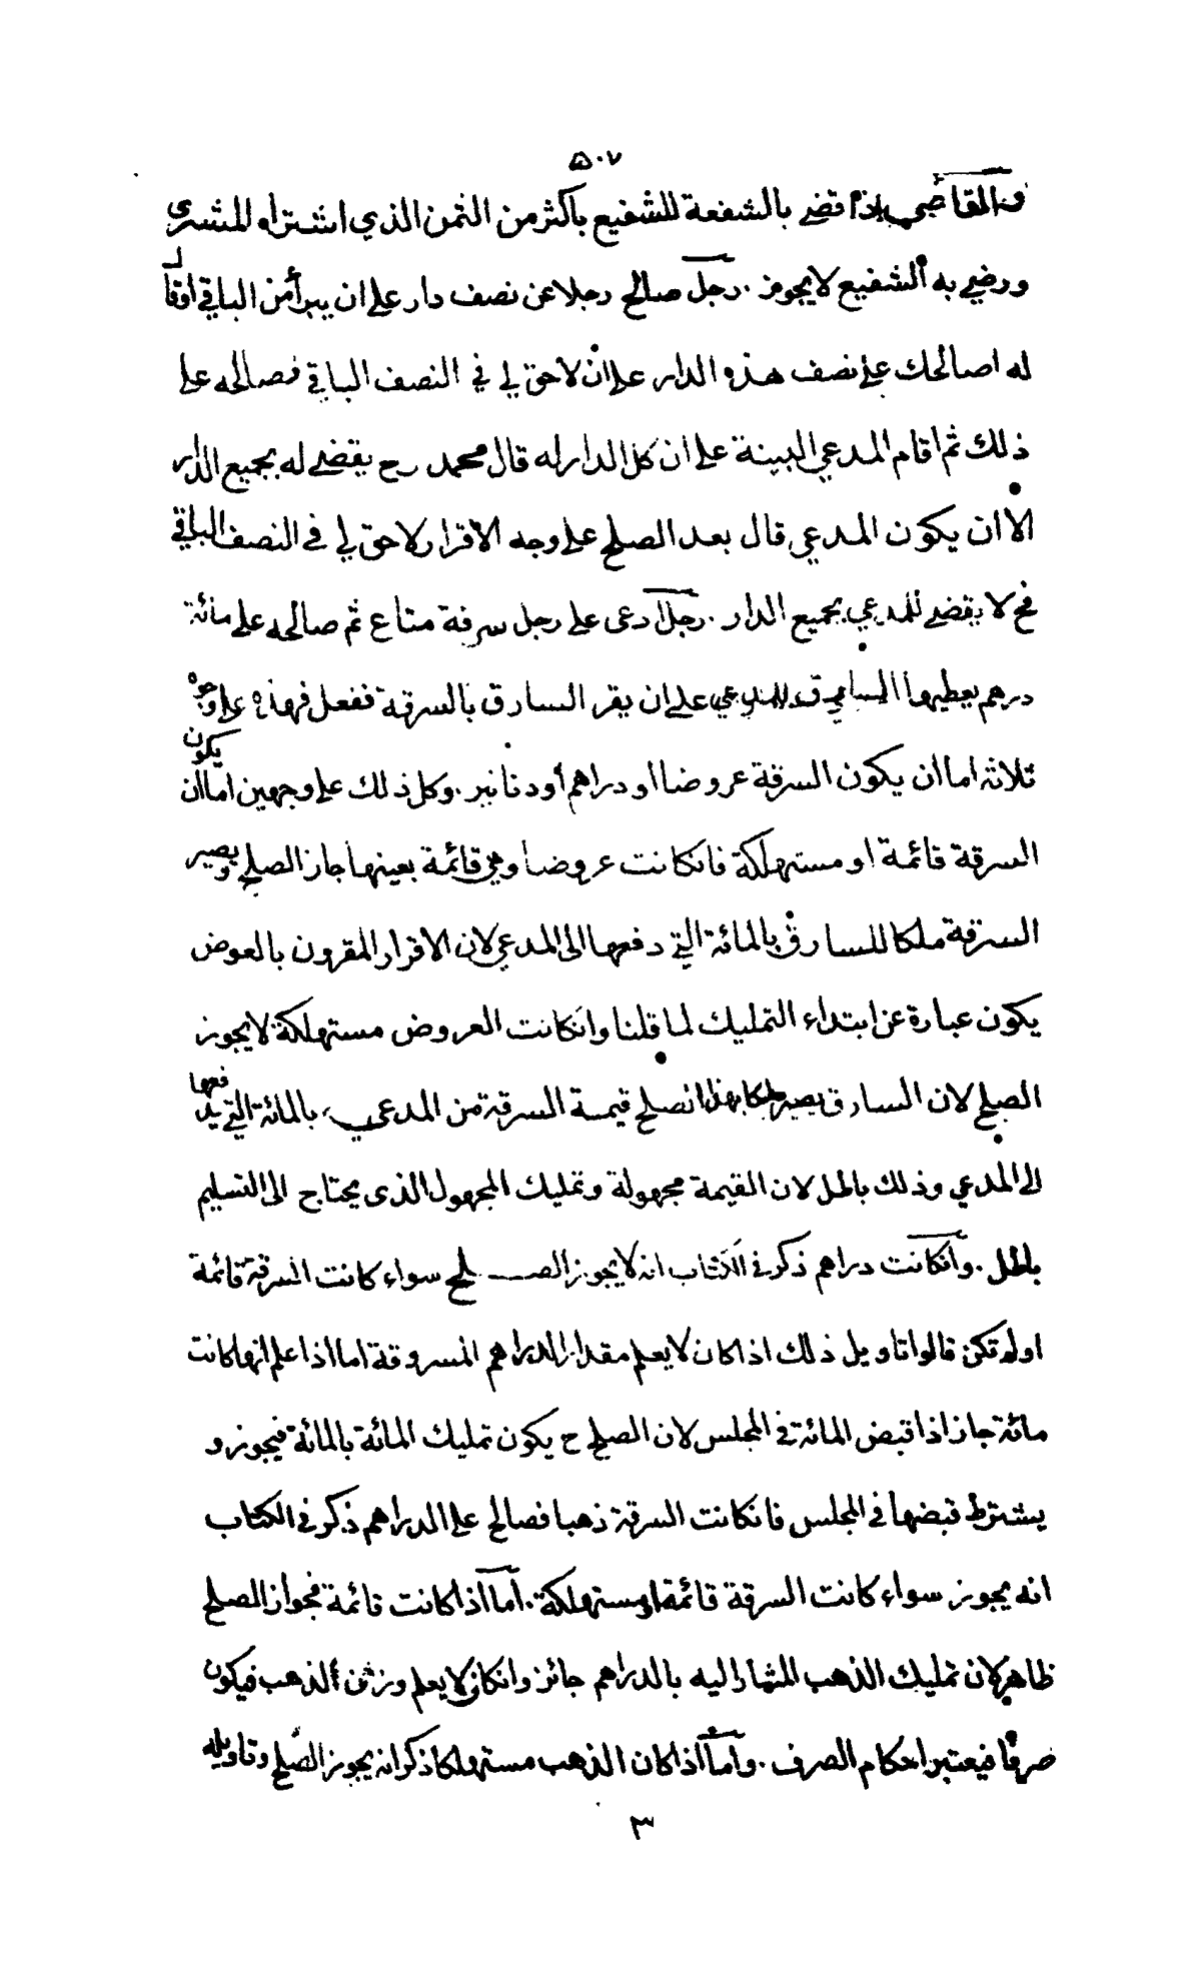 ٥٠٧
والقاضي إذا قضى بالشفعة للشفيع باكثر من الثمن الذي اشتراه المشتري
ورضي به الشفيع لا يجوز . رجل صالح رجلا عن نصف دار على ان يبرأ من الباقي او قال
له اصالحك على نصف هذه الدار على ان لا حق لي في النصف الباقي فصالحه على
ذلك ثم اقام المدعي البينة على ان كل الدار له قال محمد رح يقضى له بجميع الدار
الا ان يكون المدعي قال بعد الصلح على وجه الاقرار لا حق لي في النصف الباقي
فح لا يقضى للمدعي بجميع الدار . رجل ادعى على رجل سرقة متاع ثم صالحه على مائة
درهم يعطيها السارق للمدعي على ان يقر السارق بالسرقة ففعل فهذه على وجوه
ثلاثة اما ان يكون السرقة عروضا او دراهم أو دنانير . وكل ذلك على وجهين اما ان يكون
السرقة قائمة او مستهلكة فانكانت عروضا وهي قائمة بعينها جاز الصلح ويصير
السرقة ملكا للسارق بالمائة التي دفعها الى المدعي لان الاقرار المقرون بالعوض
يكون عبارة عن ابتداء التمليك لما قلنا وانكانت العروض مستهلكة لا يجوز
الصلح لان السارق يصير بهذا الصلح قيمة السرقة من المدعي بالمائة التي يدفعها
الى المدعي وذلك باطل لان القيمة مجهولة وتمليك المجهول الذى يحتاج الى التسليم
باطل . وانكانت دراهم ذكر في الكتاب انه لا يجوز الصلح سواء كانت السرقة قائمة
او لم تكن قالوا تاويل ذلك اذا كان لا يعلم مقدار الدراهم المسروقة اما اذا علم انها كانت
مائة جاز اذا قبض المائة في المجلس لان الصلح ح يكون تمليك المائة بالمائة فيجوز و
يشترط قبضها في المجلس فانكانت السرقة ذهبا فصالح على الدراهم ذكر في الكتاب
انه يجوز سواء كانت السرقة قائمة او مستهلكة . اما اذا كانت قائمة فجواز الصلح
ظاهر لان تمليك الذهب المشار اليه بالدراهم جائز وانكان لا يعلم وزن الذهب فيكون
صرفا فيعتبر احكام الصرف . واما اذا كان الذهب مستهلكا ذكر انه يجوز الصلح وتاويله
٣